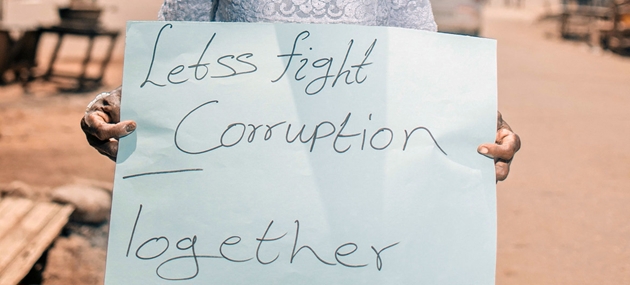 Letss fight
Corruption
together